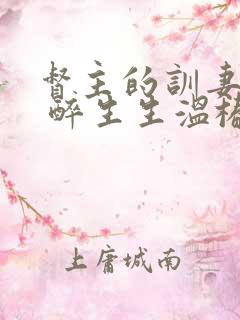 督主的訓妻
醉生生溫
上庸城南